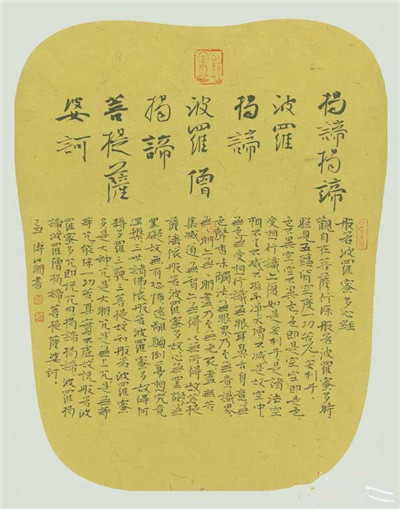 揭諦揭諦
波羅
揭諦
波羅僧
揭諦
菩提薩
婆訶
般若波羅蜜多心經
觀自在菩薩行深般若波羅蜜多時
照見五蘊皆空度一切苦厄舍利子
色不異空空不異色色即是空空即是色
受想行識亦復如是舍利子是諸法空
相不生不滅不垢不淨不增不減是故空中
無色無受想行識無眼耳鼻舌身意無
色聲香味觸法無眼界乃至無意識界
無無明亦無無明盡乃至無老死亦無老死盡無苦
集滅道無智亦無得以無所得故菩提
薩埵依般若波羅蜜多故心無罣礙無
罣礙故無有恐怖遠離顛倒夢想究竟
涅槃三世諸佛依般若波羅蜜多故得阿
耨多羅三藐三菩提故知般若波羅蜜
多是大神咒是大明咒是無上咒是無
等等咒能除一切苦真實不虛故說般若波
羅蜜多咒即說咒曰揭諦揭諦波羅揭
諦波羅僧揭諦菩提薩婆訶